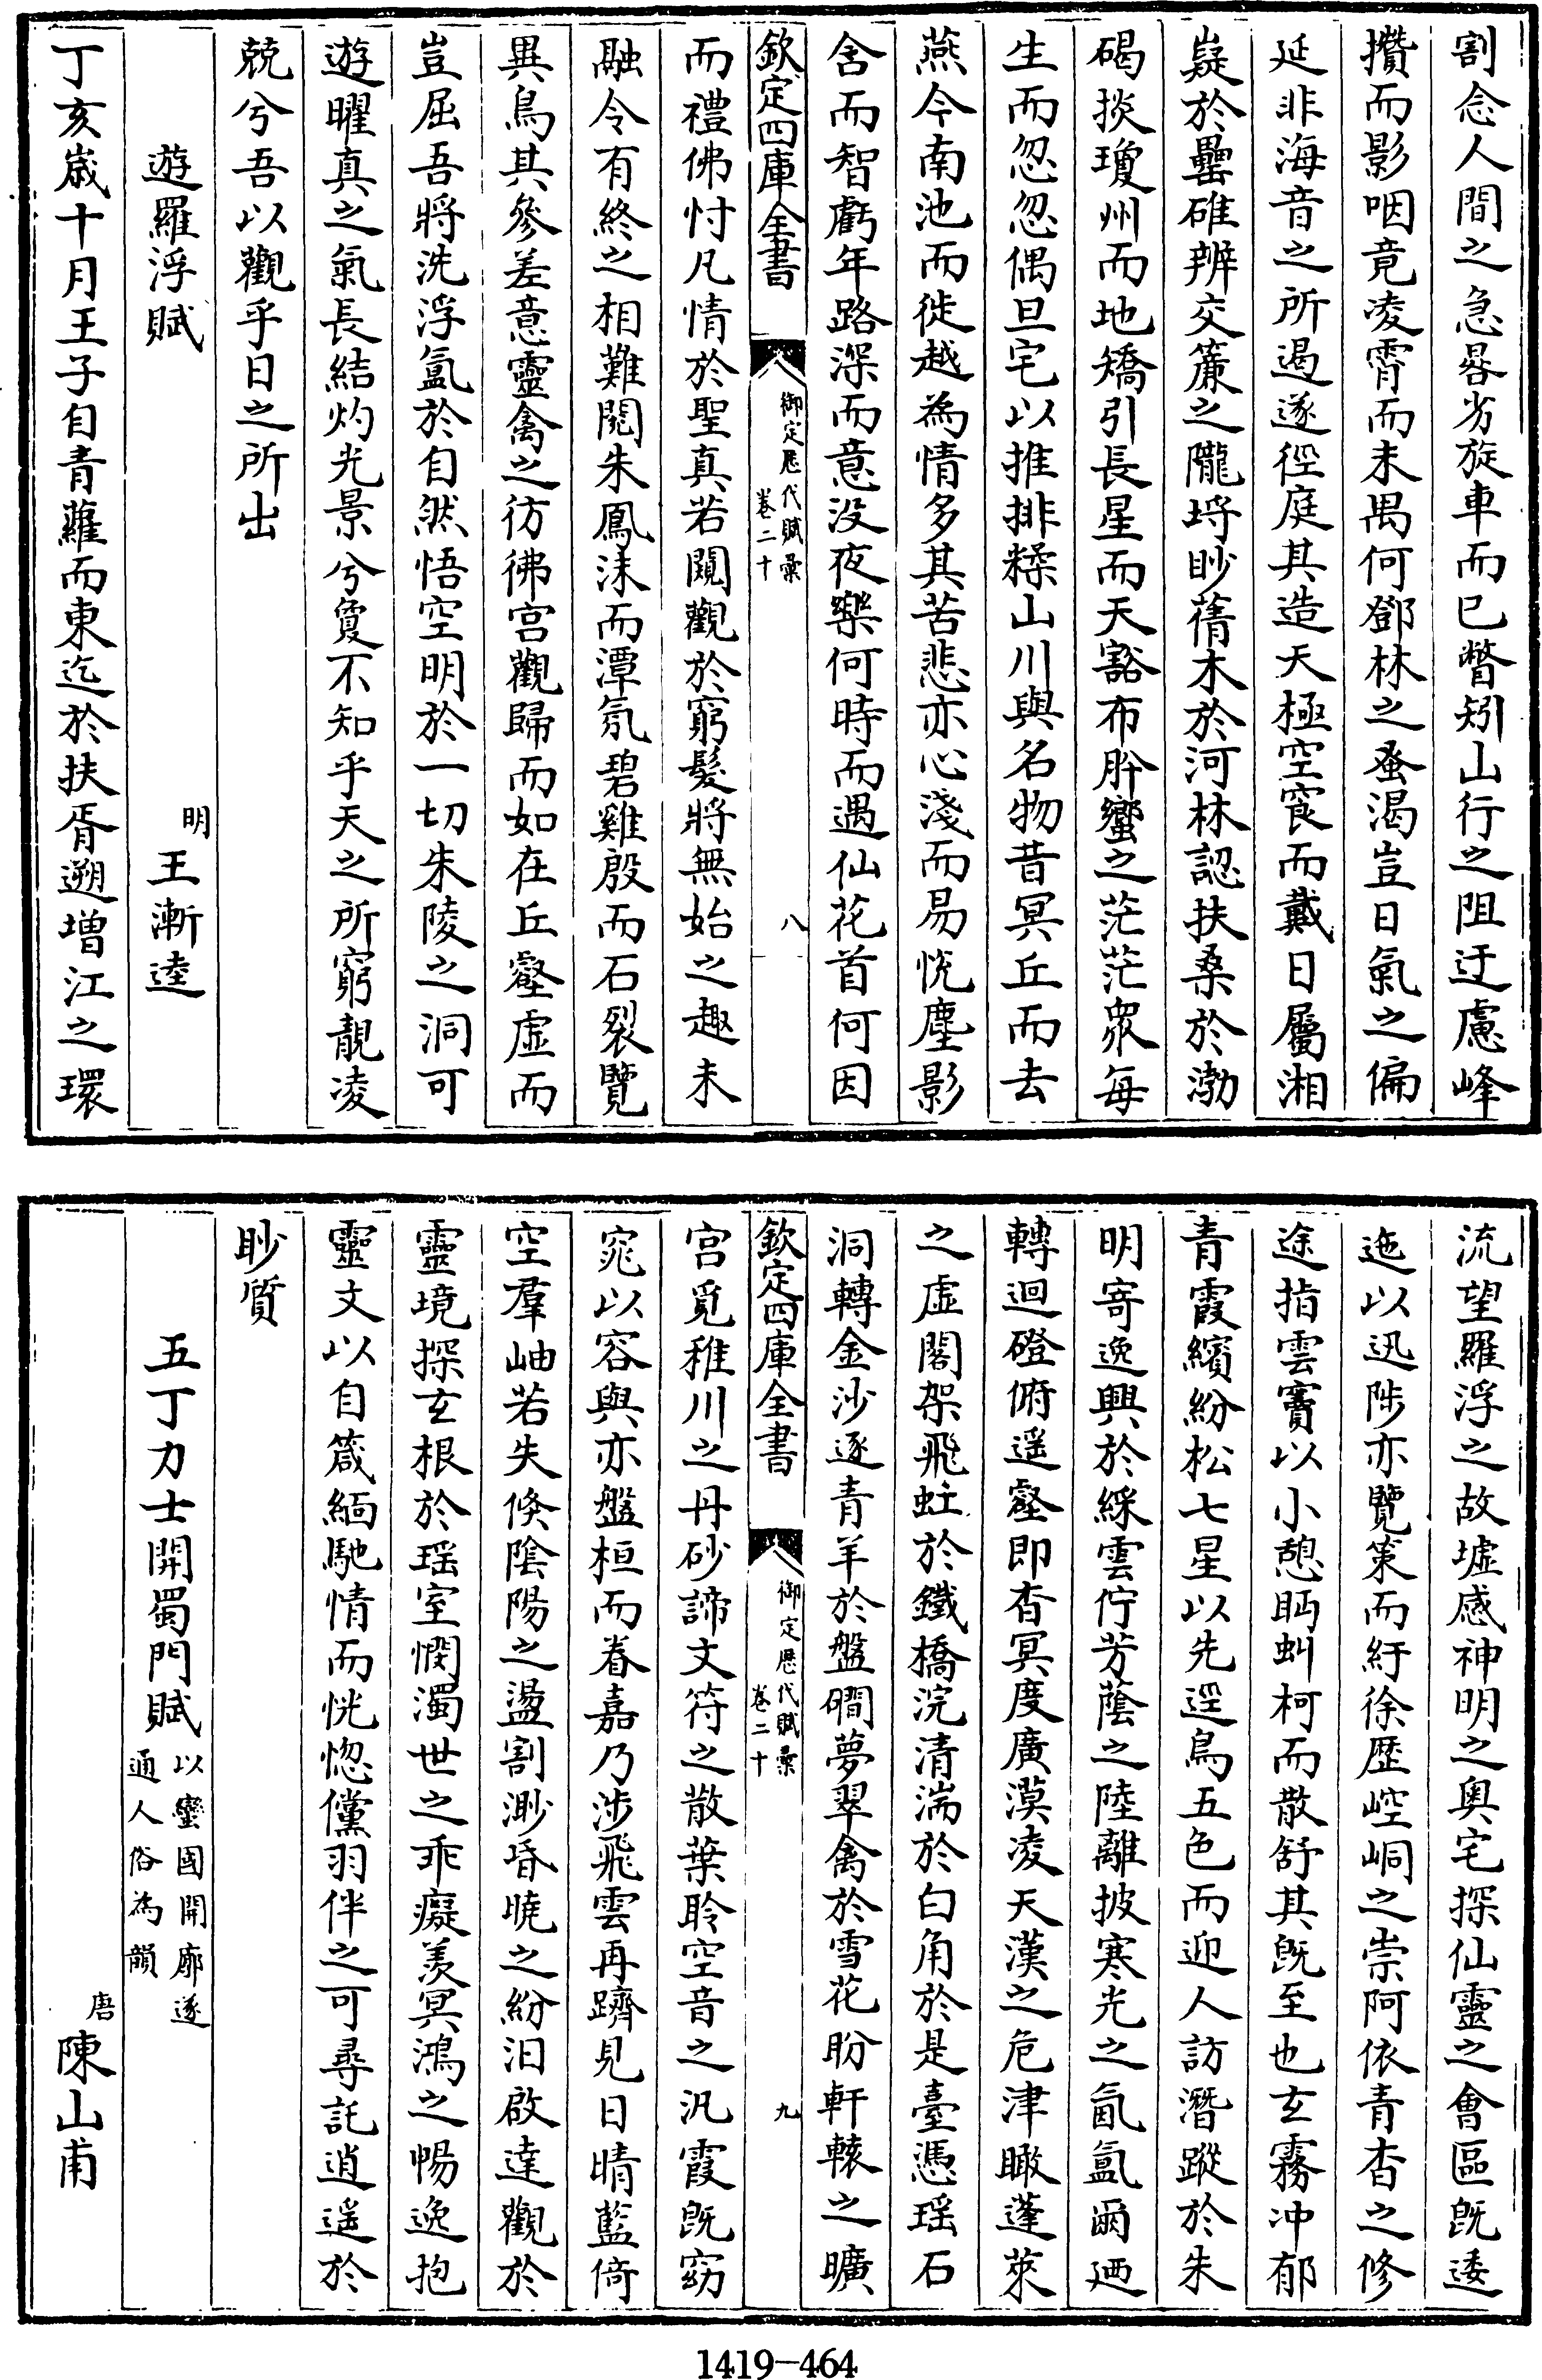 割念人間之急晷劣旋車而已瞥矧山行之阻迂慮峰
攢而影咽竟凌霄而未禺何鄧林之蚤渴豈日氣之偏
延非海音之所遏遂徑庭其造天極空㝗而戴日屬湘
嶷於罍碓辨交簾之隴埒眇蒨木於河林認扶桑於渤
碣掞瓊州而地矯引長星而天豁布肸蠁之茫茫衆每
生而忽忽偶旦宅以推排糅山川與名物昔冥丘而去
燕今南池而徙越為情多其苦悲亦心淺而易恍塵影
含而智虧年路深而意没夜樂何時而遇仙花首何因
欽定四庫全書
御定歷代賦彙
卷二十
八
而禮佛忖凡情於聖真若闚觀於窮髮將無始之趣未
融令有終之相難閲朱鳳沫而潭氛碧雞殷而石裂覽
異鳥其參差意靈禽之彷彿宫觀歸而如在丘壑虚而
豈屈吾將洗浮氳於自然悟空明於一切朱陵之洞可
遊曜真之氣長結灼光景兮敻不知乎天之所窮靚凌
兢兮吾以觀乎日之所出
遊羅浮賦
明
王漸逵
丁亥歲十月王子自青蘿而東迄於扶胥遡增江之環
流望羅浮之故墟感神明之奥宅探仙靈之會區既逶
迤以迅陟亦覽策而紆徐歷崆峒之崇阿依青杳之修
途指雲竇以小憩眄虯柯而散舒其既至也玄霧冲郁
青霞繽紛松七星以先逕鳥五色而迎人訪潛蹤於朱
明寄逸興於綵雲佇芳蔭之陸離披寒光之氤氳爾廼
轉迴磴俯遥壑即杳冥度廣漠凌天漢之危津瞰蓬萊
之虚閣架飛虹於鐵橋浣清湍於白角於是臺憑瑶石
洞轉金沙逐青羊於盤磵夢翠禽於雪花盼軒轅之曠
欽定四庫全書
御定歷代賦彙
卷二十
九
宫覓稚川之丹砂諦文符之散葉聆空音之汎霞既窈
窕以容與亦盤桓而眷嘉乃涉飛雲再躋見日晴藍倚
空羣岫若失倏陰陽之盪割渺昏曉之紛汩啟達觀於
靈境探玄根於瑶室憫濁世之乖癡羨冥鴻之暢逸抱
靈文以自箴緬馳情而恍惚儻羽伴之可尋託逍遥於
眇質
五丁力士開蜀門賦
以蠻國開廓遂
通人俗為韻
唐
陳山甫
1419–464